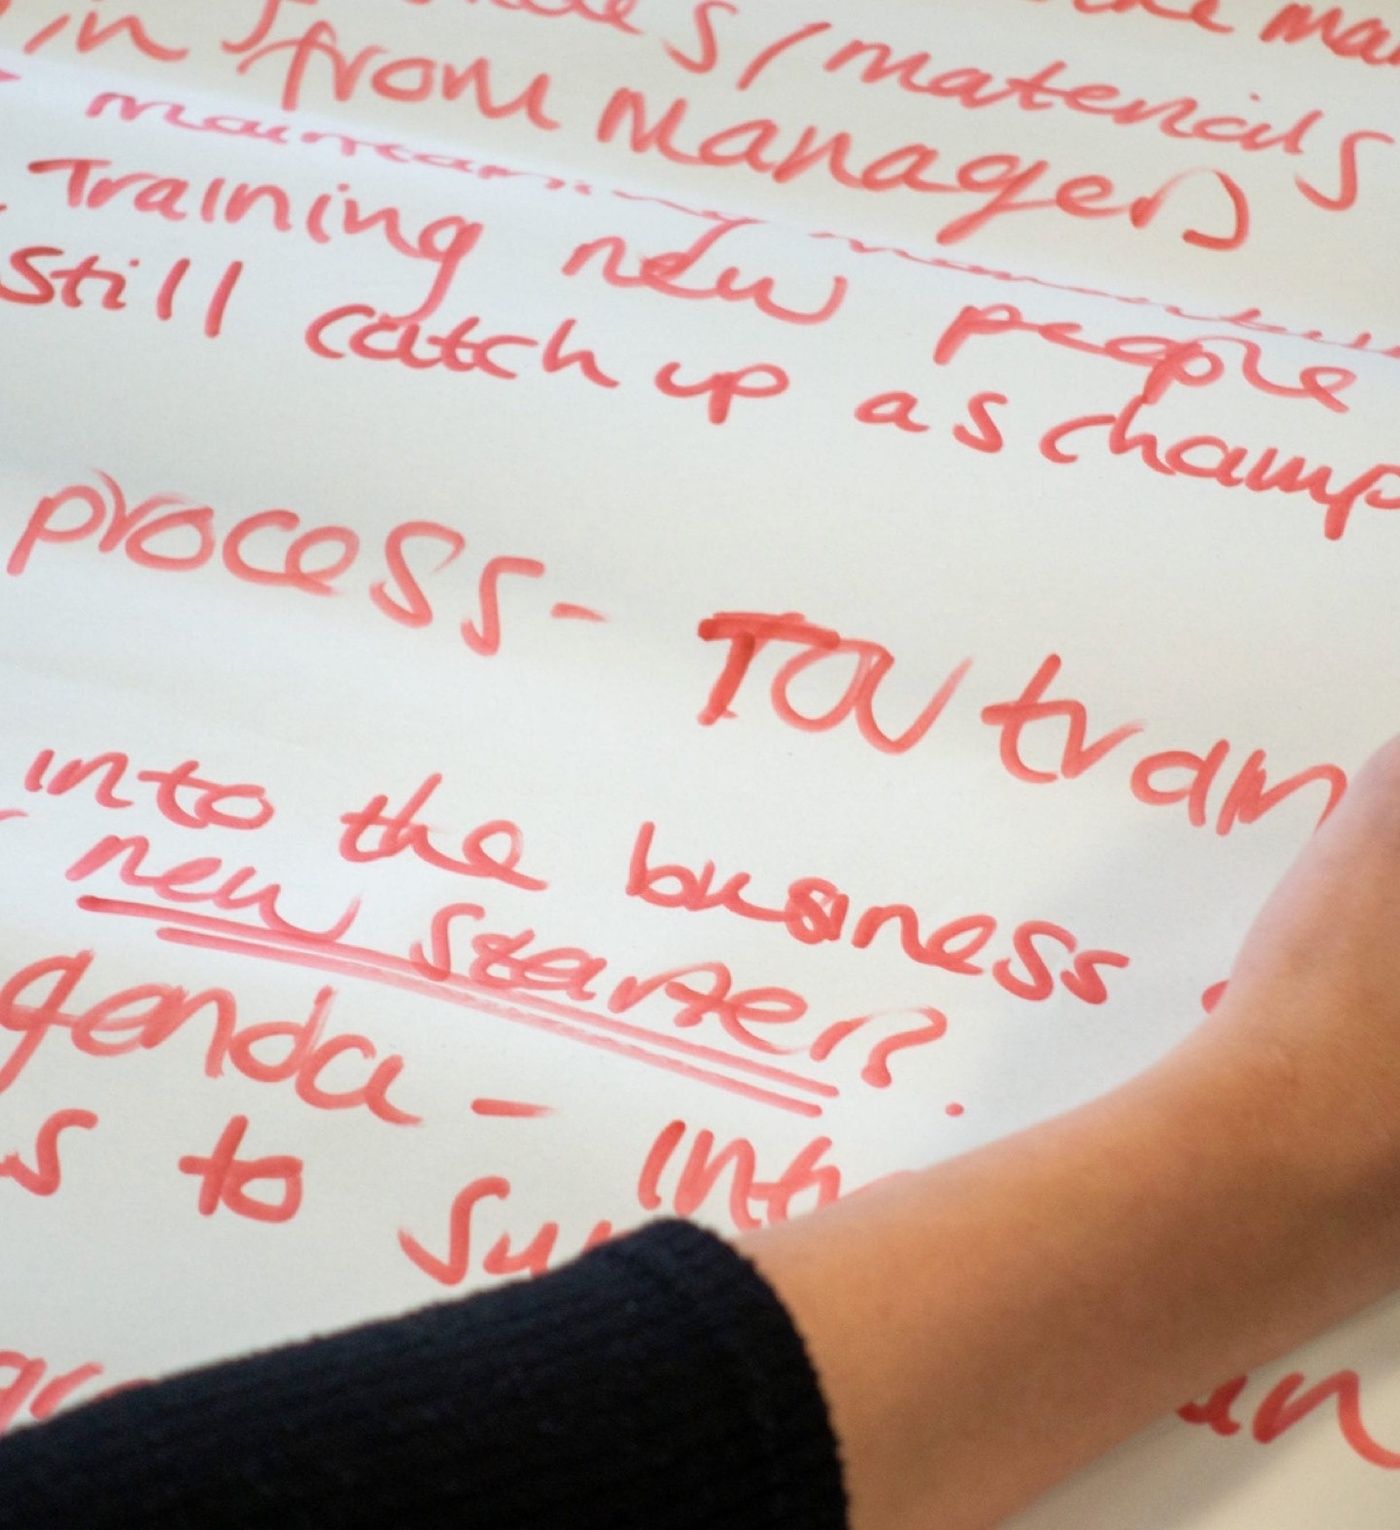 /materials
in from Managers
maintaining momentum
Training new people
Still catch up as champ
process - TOV train
into the business
new starter?
genda - Int
s to Su
an